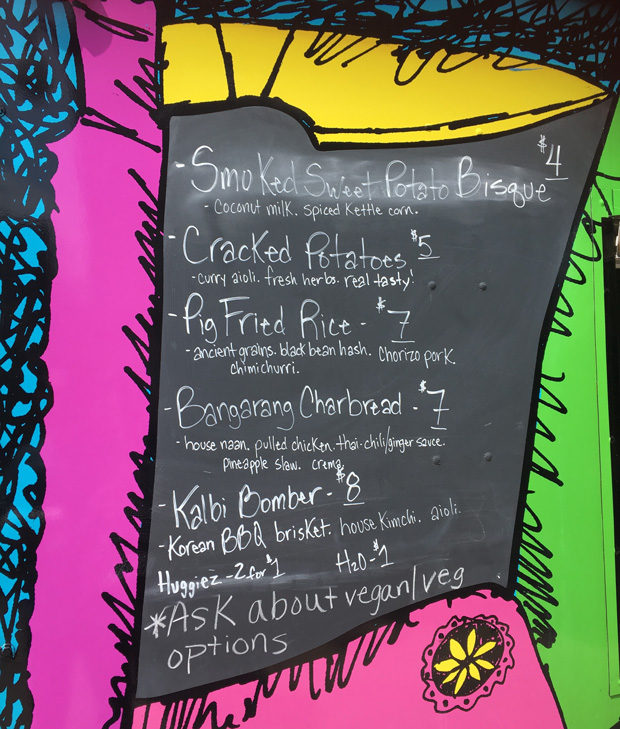 - Smoked Sweet Potato Bisque $4
- Coconut milk. spiced Kettle corn.
- Cracked Potatoes $5
- curry aioli. fresh herbs. real tasty!
- Pig Fried Rice - $7
- ancient grains. black bean hash. Chorizo pork.
chimichurri.
- Bangarang Charbread - $7
- house naan. pulled chicken. thai-chili/ginger sauce.
pineapple slaw. crema
- Kalbi Bomber - $8
- Korean BBQ brisket. house Kimchi. aioli.
Huggiez - 2 for $1 H2O - $1
*Ask about vegan/veg
options